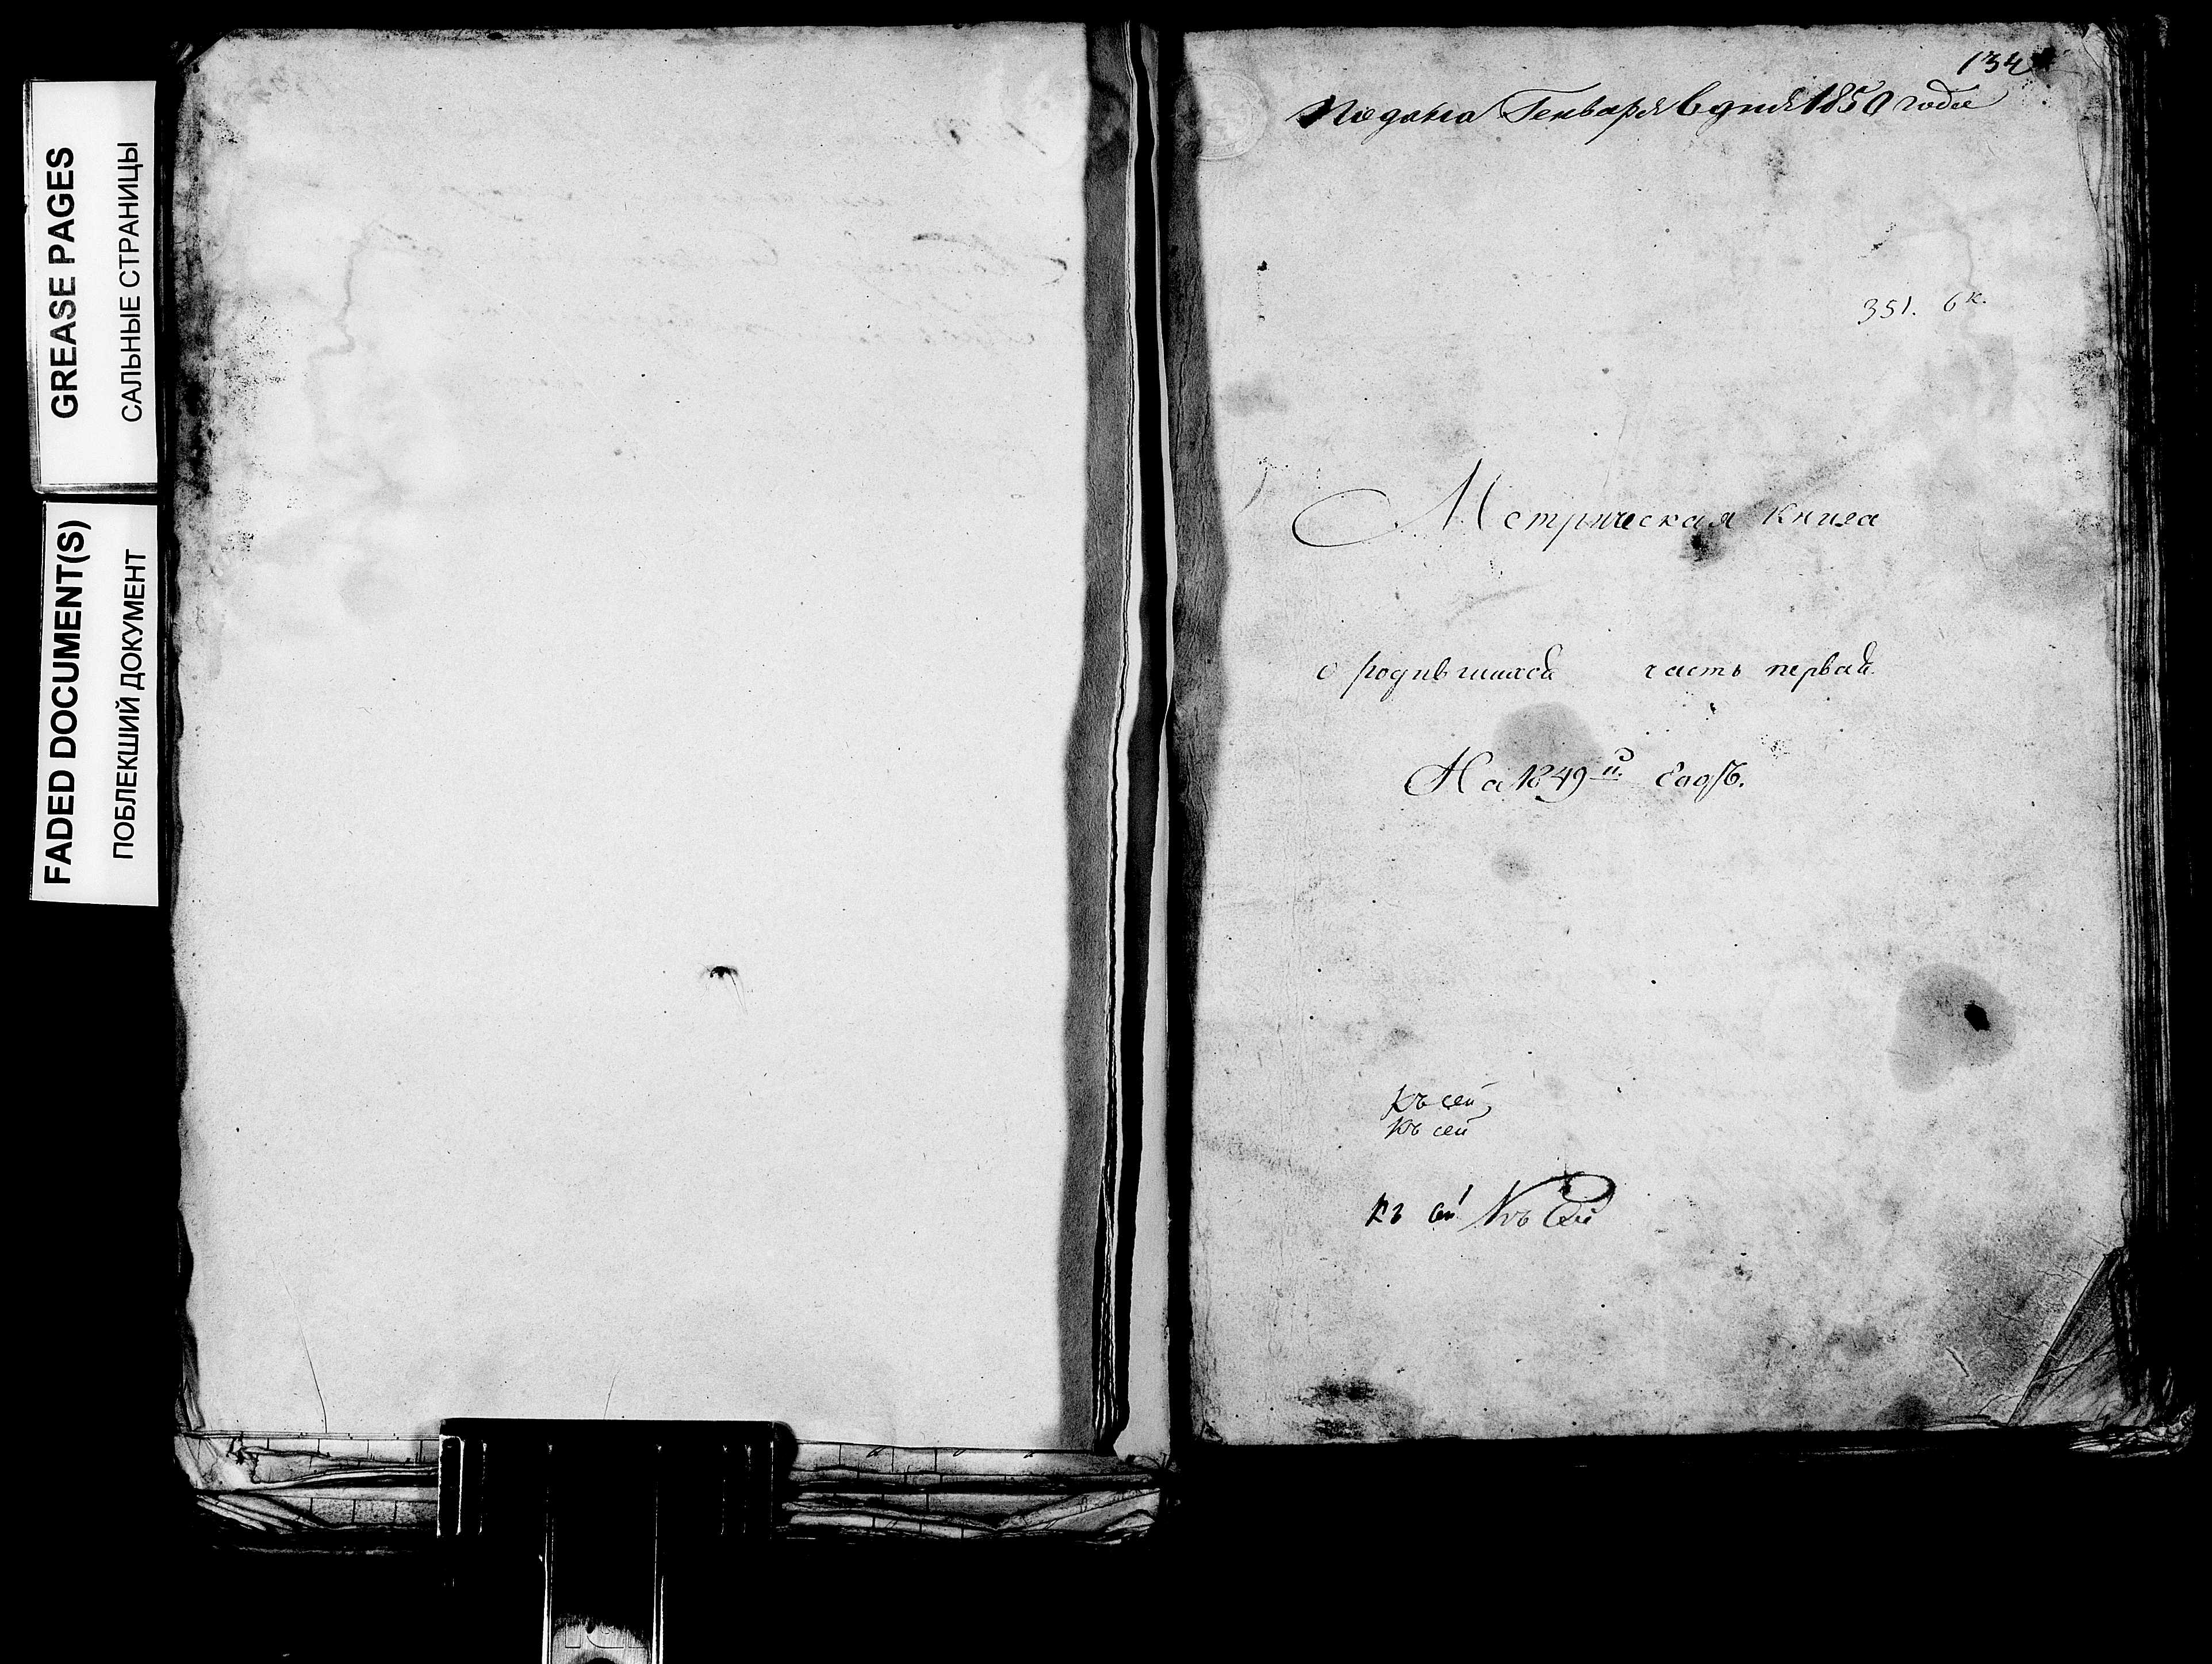 GREASE PAGES
САЛЬНЫЕ СТРАНИЦЫ
FADED DOCUMENT(S)
ПОБЛЕКШИЙ ДОКУМЕНТ
134
Подана Генваря 6 дня 1850 года
351. 6 к.
Метрическая книга
о родившихся часть первая.
На 1849й. Годъ.
Къ сей
Къ сей
Къ сей Къ Сей